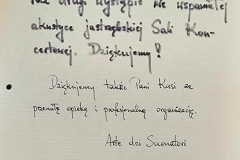 drugi występ we wspaniałej
akustyce jastrzębskiej Sali Kon-
certowej. Dziękujemy!
Dziękujemy także Pani Kasi za
przemiłą opiekę i profesjonalną organizację
Arte dei Suonatori